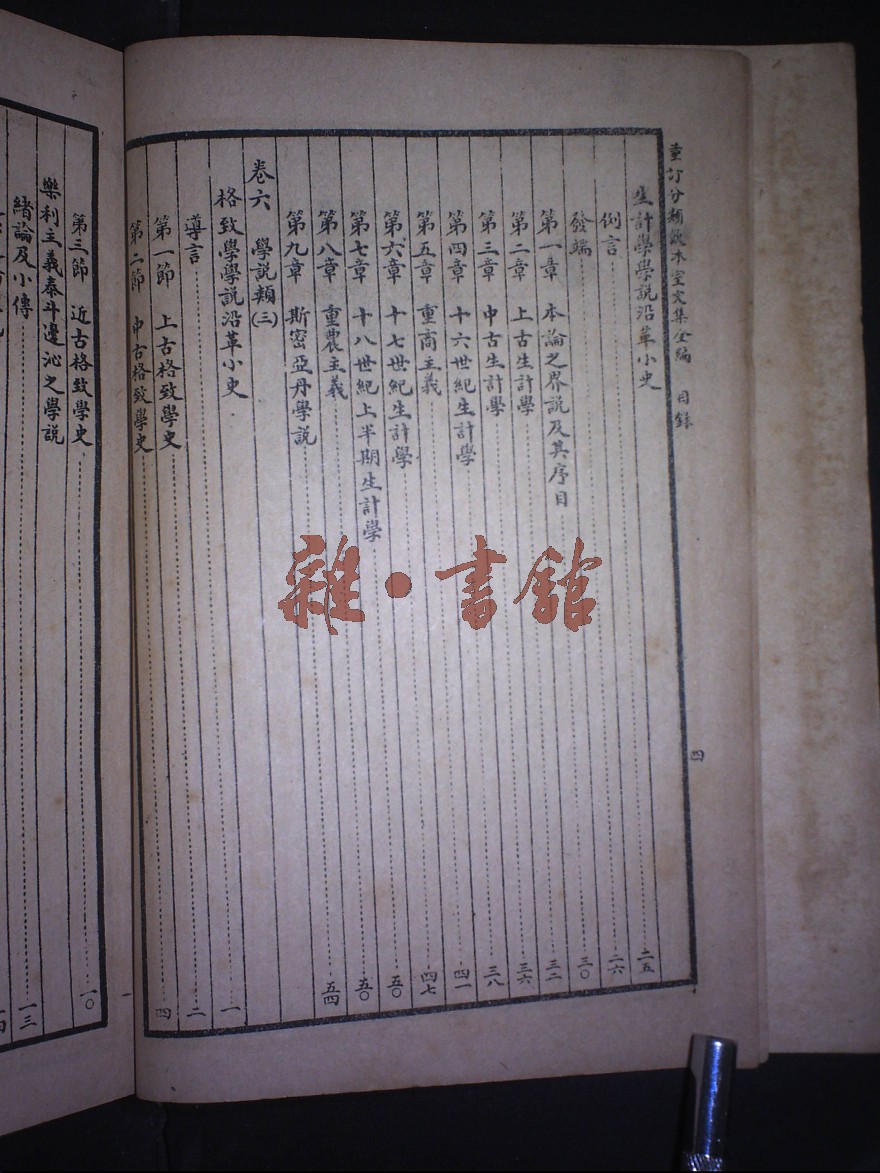 重訂分類飲冰室文集全編 目錄
四
生計學學說沿革小史 二五
例言 二六
發端 三〇
第一章 本論之界說及其序目 三二
第二章 上古生計學 三六
第三章 中古生計學 三八
第四章 十六世紀生計學 四一
第五章 重商主義 四七
第六章 十七世紀生計學 五〇
第七章 十八世紀上半期生計學 五〇
第八章 重農主義 五四
第九章 斯密亞丹學說
卷六 學說類(三)
格致學學說沿革小史 一
導言 二
第一節 上古格致學史
第二節 中古格致學史 四
第三節 近古格致學史 一〇
樂利主義泰斗邊沁之學說
緒論及小傳 一三
雜·書館